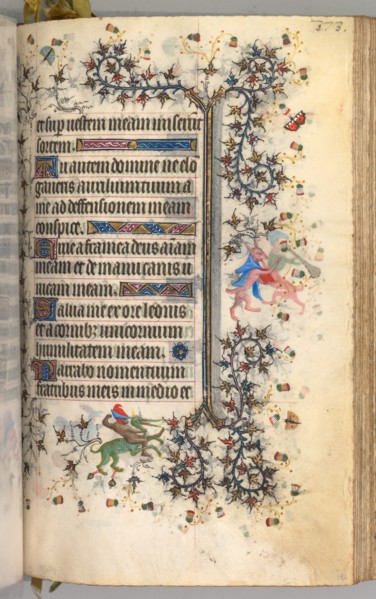 373.
et sup vestem meam miserūt
sortem.
Tu autem domine ne elo
gaveris auxilium tuum a
me ad deffensionem meam
conspice.
Erue a framea deus aīam
meam et de manu canis u
nicam meam.
Salva me ex ore leonis
et a cornibȝ unicornium
humilitatem meam.
Narrabo nomen tuum
fratribus meis in medio ec